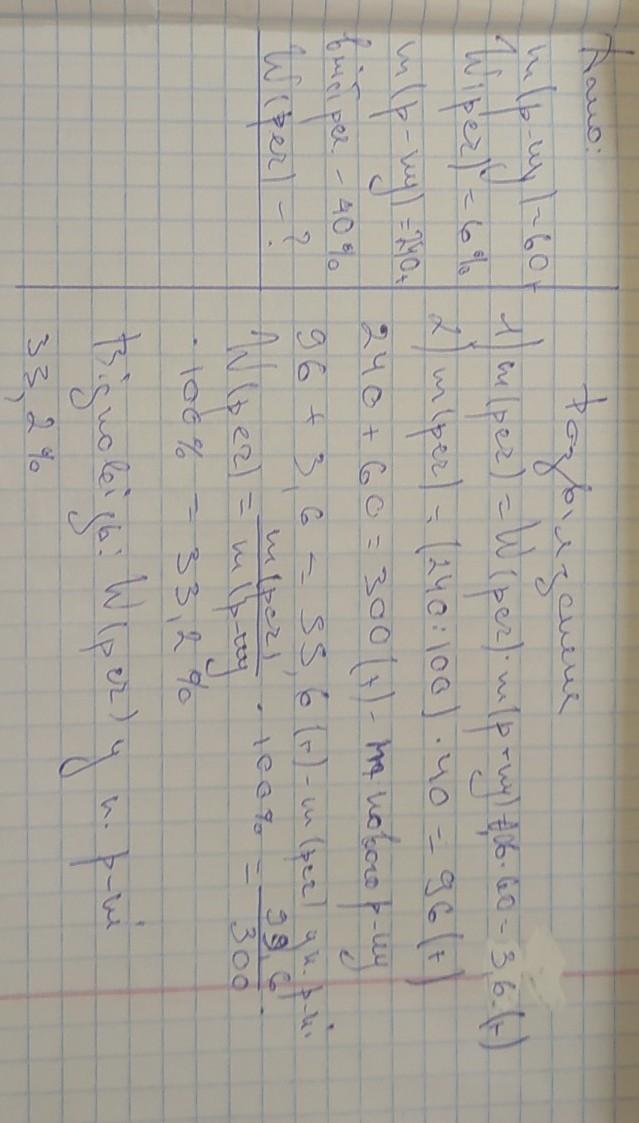 Дано:
m(р-ну)=60г
W(реч)=6%
m(р-ну)=240г
вміст реч. - 40%
W(реч) - ?
Розв'язання
1) m(реч) = W(реч)·m(р-ну) = 0,06·60 = 3,6 (г)
2) m(реч) = (240:100)·40 = 96 (г)
240 + 60 = 300 (г) - нового р-ну
96 + 3,6 = 99,6 (г) - m(реч) у н. р-ні.
W(реч) = m(реч)/m(р-ну) · 100% = 99,6/300 ·
· 100% = 33,2%
Відповідь: W(реч) у н. р-ні
33,2%